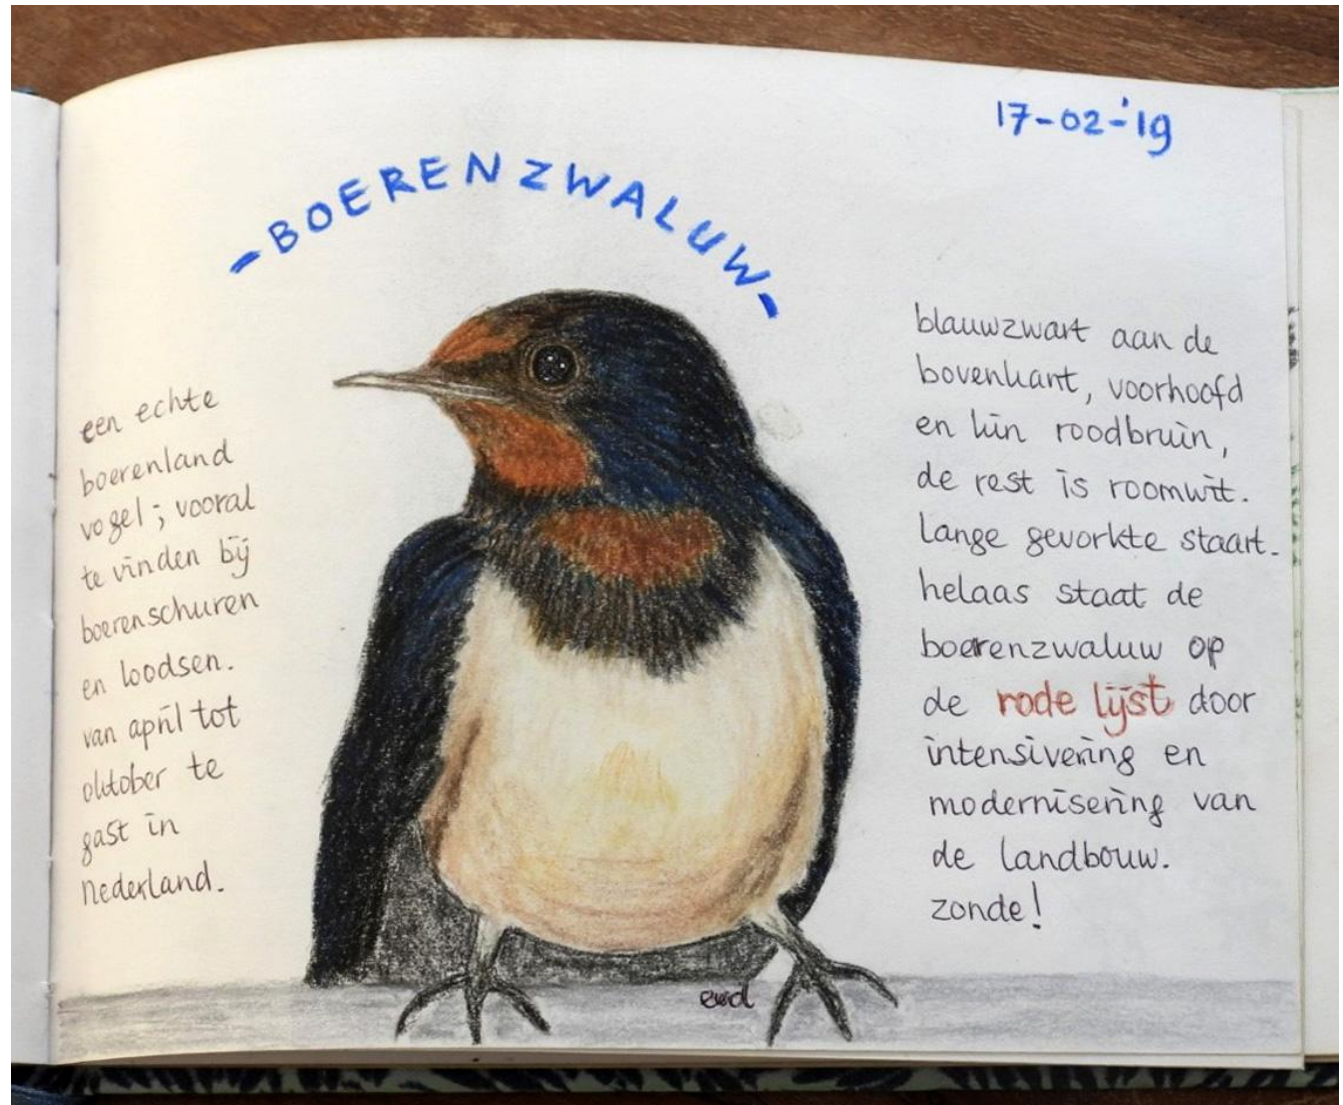 17-02-'19
-BOERENZWALUW-
een echte
boerenland
vogel; vooral
te vinden bij
boerenschuren
en loodsen.
van april tot
oktober te
gast in
Nederland.
blauwzwart aan de
bovenkant, voorhoofd
en kin roodbruin,
de rest is roomwit.
lange gevorkte staart.
helaas staat de
boerenzwaluw op
de rode lijst door
intensivering en
modernisering van
de landbouw.
zonde!
ewd